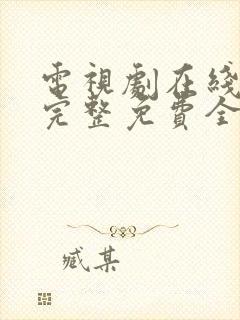 電視劇在綫
完整免費全
臧某